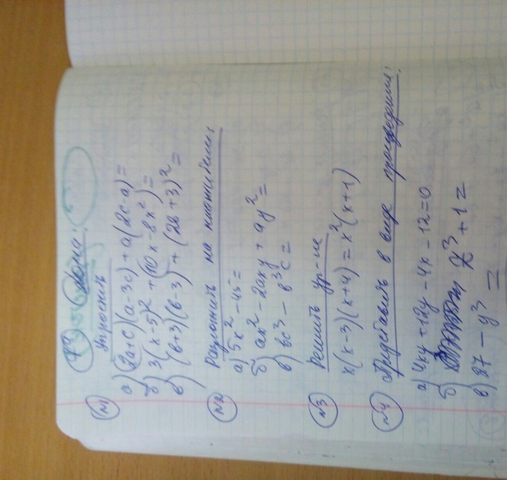 Дома:
№1 Упростить
а) (2a+c)(a-3c)+a(2c-a)=
б) 3(x-5)²+(10x-8x²)=
в) (b+3)(b-3)+(2b+3)²=
№2 Разложить на множители:
а) 5x²-45=
б) ax²-2axy+ay²=
в) bc³-b³c=
№3 Решить ур-ие
x(x-3)(x+4)=x²(x+1)
№4 Представить в виде произведения:
а) 4xy+12y-4x-12=0
б) x³+1=
в) 27-y³=